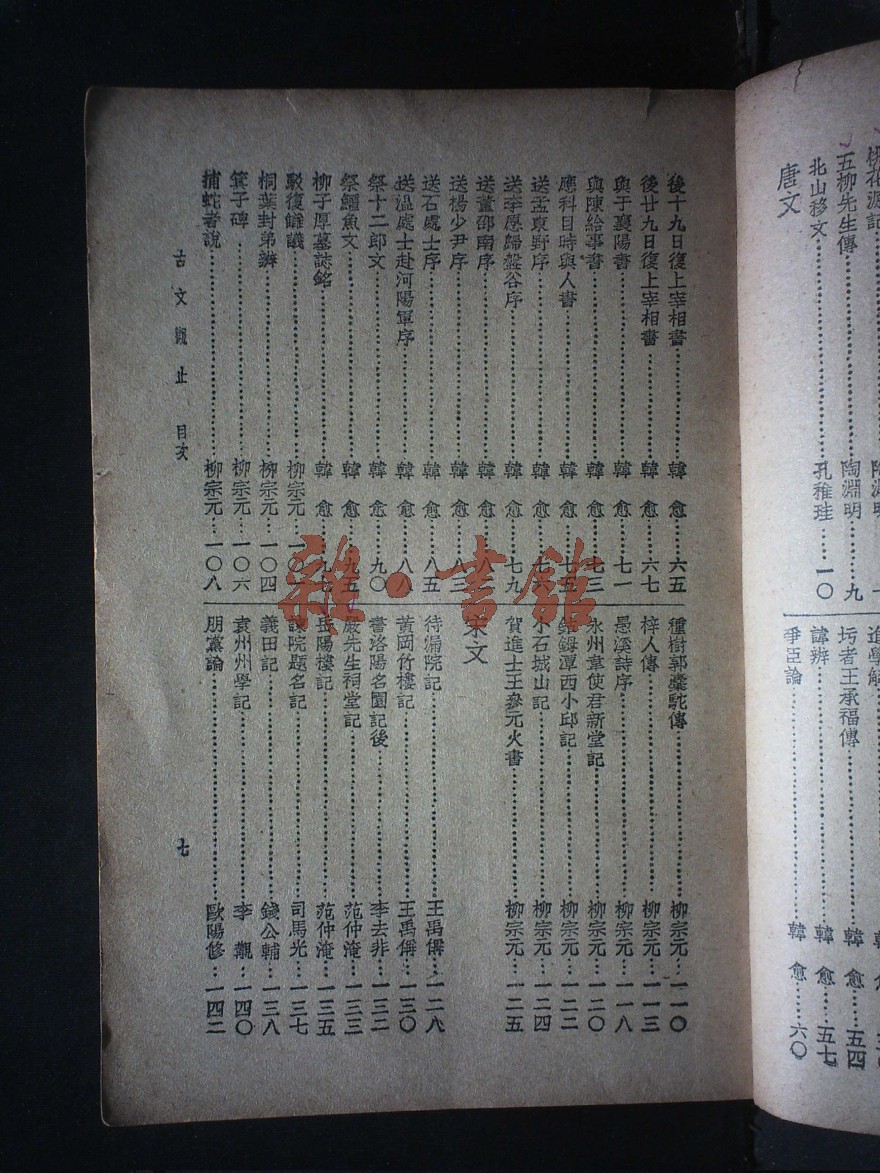 桃花源記……陶淵明
五柳先生傳……陶淵明……九
北山移文……孔稚珪……一〇
唐文
進學解……韓愈
圬者王承福傳……韓愈……五四
諱辨……韓愈……五七
爭臣論……韓愈……六〇
後十九日復上宰相書……韓愈……六五
後廿九日復上宰相書……韓愈……六七
與于襄陽書……韓愈……七一
與陳給事書……韓愈……七三
應科目時與人書……韓愈……七五
送孟東野序……韓愈……七六
送李愿歸盤谷序……韓愈……七九
送董邵南序……韓愈……八
送楊少尹序……韓愈……八三
送石處士序……韓愈……八五
送溫處士赴河陽軍序……韓愈……八八
祭十二郎文……韓愈……九〇
祭鱷魚文……韓愈……九五
柳子厚墓誌銘……韓愈……九七
駁復讎議……柳宗元……一〇一
桐葉封弟辨……柳宗元……一〇四
箕子碑……柳宗元……一〇六
捕蛇者說……柳宗元……一〇八
種樹郭橐駝傳……柳宗元……一一〇
梓人傳……柳宗元……一一三
愚溪詩序……柳宗元……一一八
永州韋使君新堂記……柳宗元……一二〇
鈷鉧潭西小邱記……柳宗元……一二二
小石城山記……柳宗元……一二四
賀進士王參元火書……柳宗元……一二五
宋文
待漏院記……王禹偁……一二八
黃岡竹樓記……王禹偁……一三〇
書洛陽名園記後……李去非……一三二
嚴先生祠堂記……范仲淹……一三三
岳陽樓記……范仲淹……一三五
諫院題名記……司馬光……一三七
義田記……錢公輔……一三八
袁州州學記……李觀……一四〇
朋黨論……歐陽修……一四二
古文觀止 目次
七
雜·書館